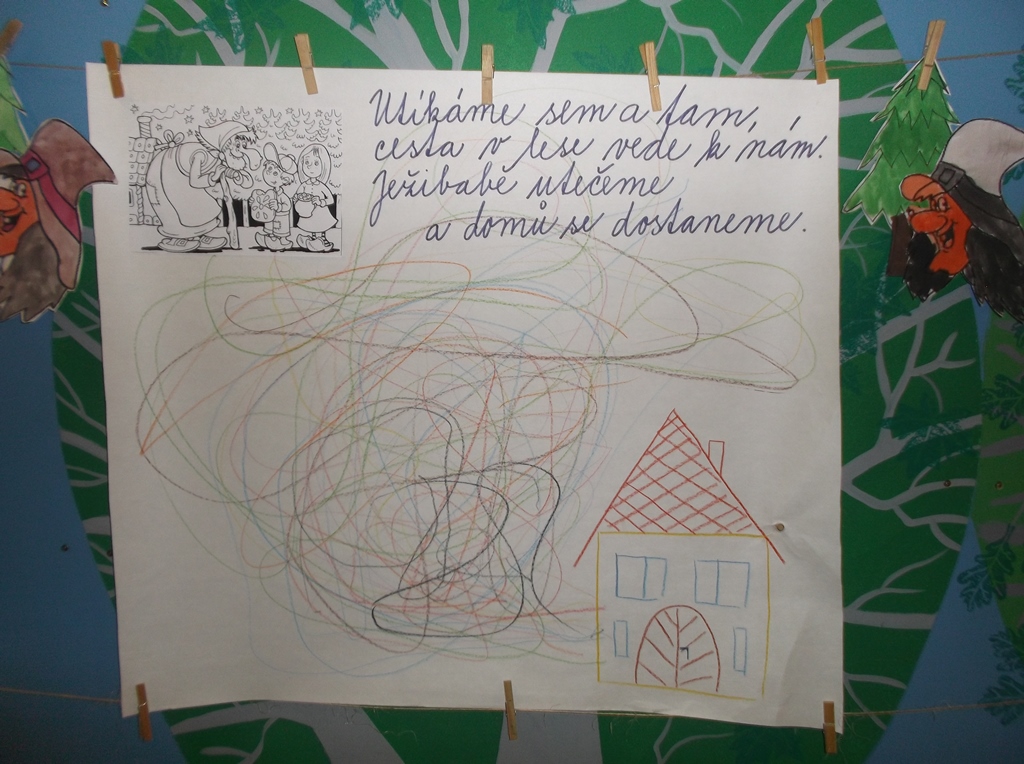 Utíkáme sem a tam,
cesta v lese vede k nám.
Ježibabě utečeme
a domů se dostaneme.